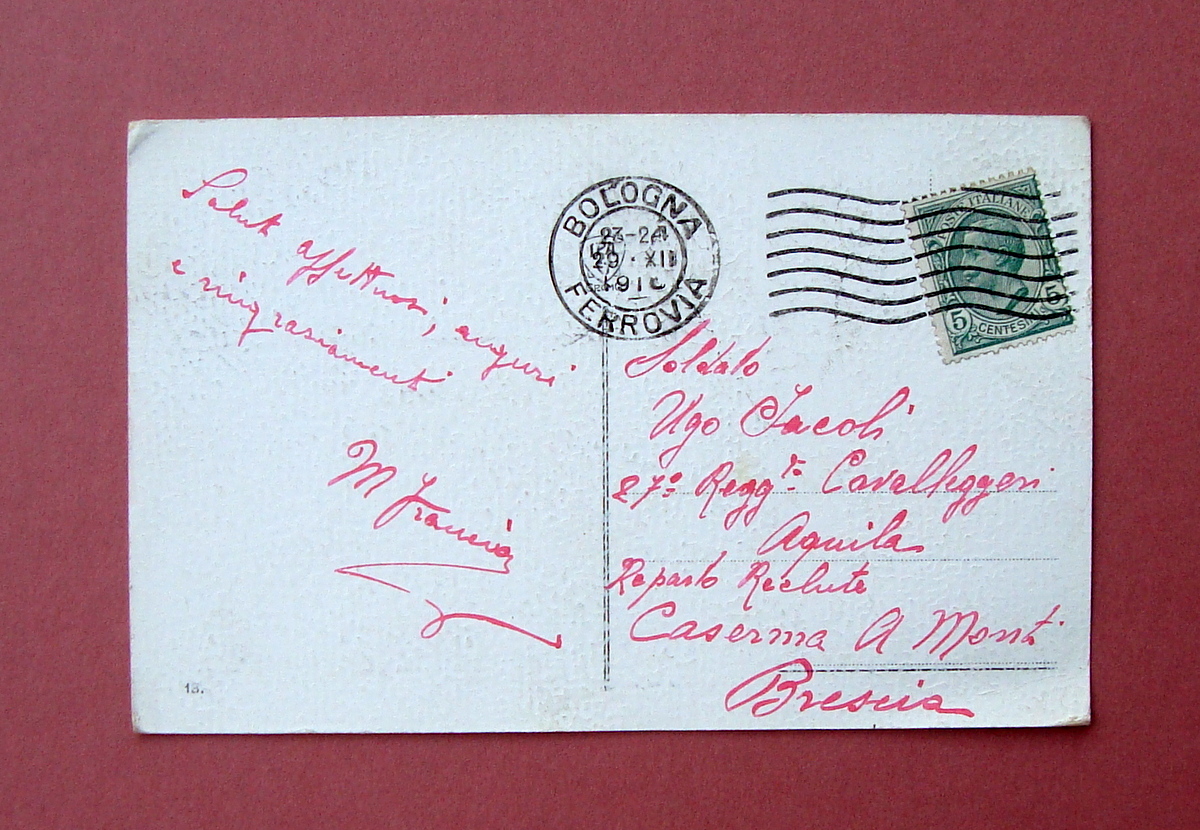 Saluti affettuosi, auguri
e ringraziamenti
M Francia
13.
BOLOGNA
23-24
29·XII
FERROVIA
POSTE ITALIANE
5 CENTESIMI 5
Soldato
Ugo Jacoli
27º Regg.to Cavalleggeri
Aquila
Reparto Reclute
Caserma A Monti
Brescia